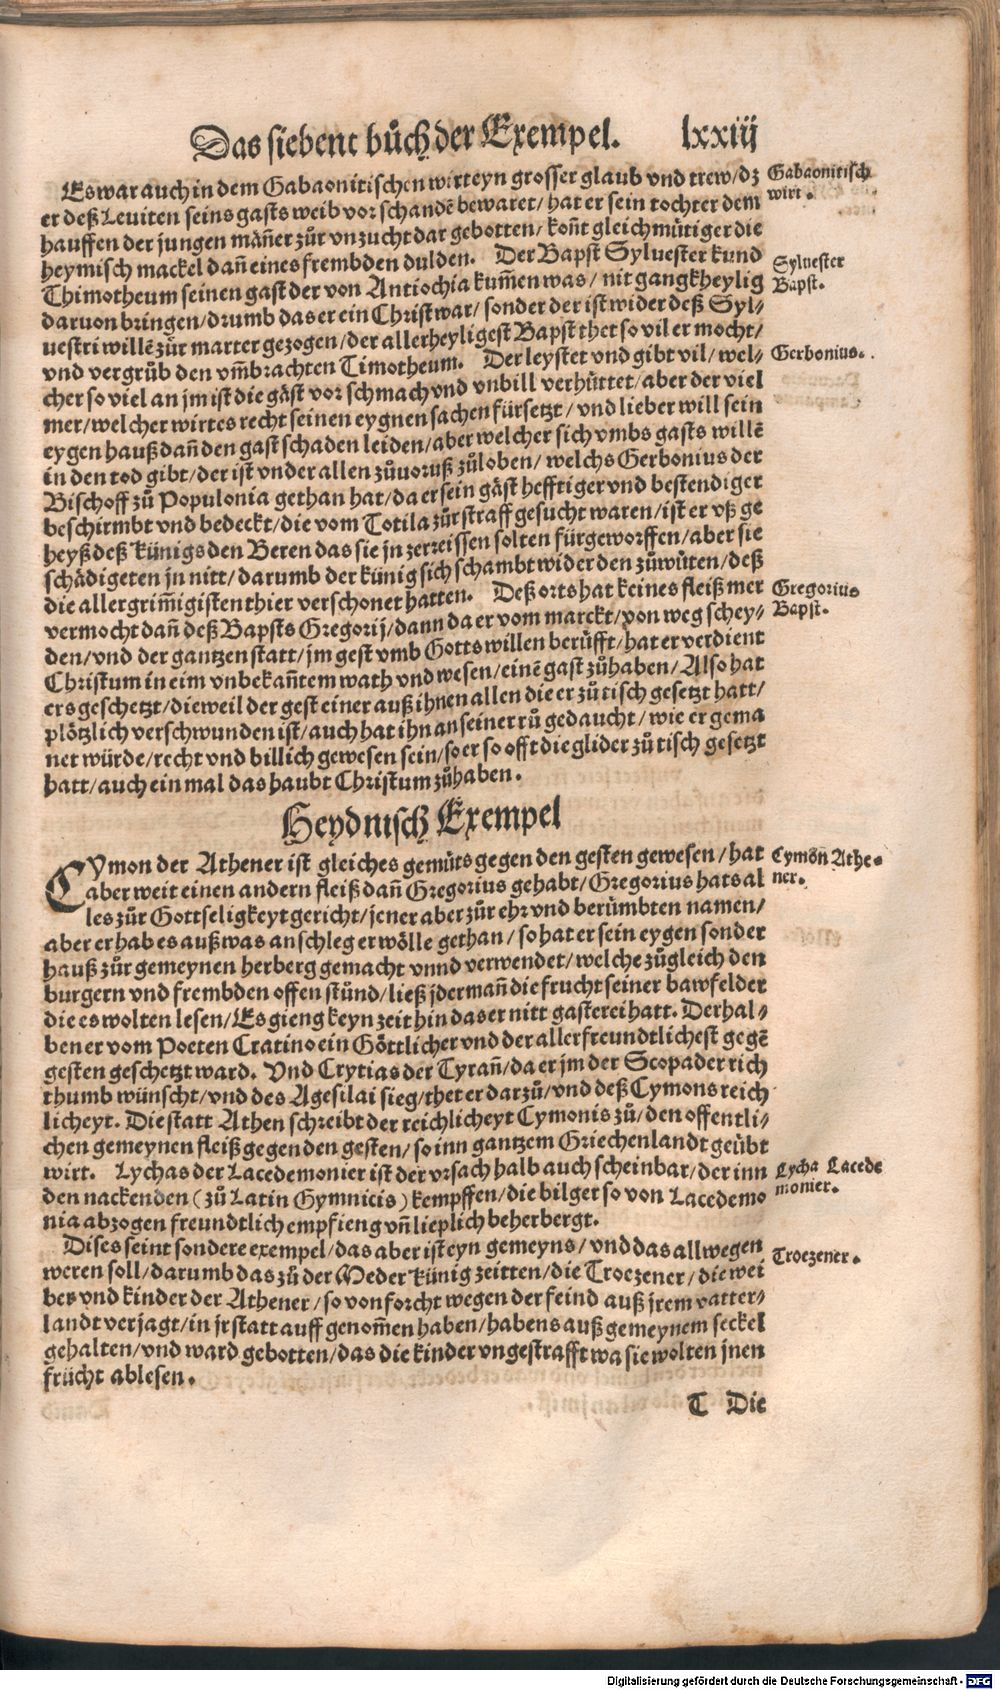 Das siebent bůch der Exempel. lxxiij
Es war auch in dem Gabaonitischen wirt eyn grosser glaub vnd trew/dz
er deß Leuiten seins gasts weib vor schandẽ bewaret/ hat er sein tochter dem
hauffen der jungen mãñer zůr vnzucht dar gebotten/ koñt gleichmütiger die
heymisch mackel dañ eines frembden dulden. Der Bapst Syluester kund
Thimotheum seinen gast der von Antiochia kum̃en was/ nit gangkheylig
daruon bringen/drumb das er ein Christ war/ sonder der ist wider deß Syl⸗
uestri willẽ zůr marter gezogen/der allerheyligest Bapst thet so vil er mocht/
vnd vergrůb den vm̃brachten Timotheum. Der leystet vnd gibt vil/ wel⸗
cher so viel an jm ist die gäst vor schmach vnd vnbill verhüttet/ aber der viel
mer/welcher wirtes recht seinen eygnen sachen fürsetzt/ vnd lieber will sein
eygen hauß dañ den gast schaden leiden/aber welcher sich vmbs gasts willẽ
in den tod gibt/der ist vnder allen zůuoruß zůloben/ welchs Gerbonius der
Bischoff zů Populonia gethan hat/da er sein gäst hefftiger vnd bestendiger
beschirmbt vnd bedeckt/die vom Totila zůr straff gesucht waren/ist er vß ge
heyß deß künigs den Beren das sie jn zerreissen solten fürgeworffen/aber sie
schädigeten jn nitt/ darumb der künig sich schambt wider den zůwüten/deß
die allergrim̃igisten thier verschonet hatten. Deß orts hat keines fleiß mer
vermocht dañ deß Bapsts Gregorij/dann da er vom marckt/von weg schey⸗
den/vnd der gantzen statt/jm gest vmb Gotts willen berüfft/hat er verdient
Christum in eim vnbekañtem wath vnd wesen/einẽ gast zůhaben/Also hat
ers geschetzt/dieweil der gest einer auß ihnen allen die er zů tisch gesetzt hatt/
plötzlich verschwunden ist/auch hat ihn an seiner rů gedaucht/wie er gema
net würde/recht vnd billich gewesen sein/so er so offt die glider zů tisch gesetzt
hatt/auch ein mal das haubt Christum zůhaben.
Heydnisch Exempel
CYmon der Athener ist gleiches gemüts gegen den gesten gewesen/hat
aber weit einen andern fleiß dañ Gregorius gehabt/Gregorius hats al
les zůr Gottseligkeyt gericht/jener aber zůr ehr vnd berümbten namen/
aber er hab es auß was anschleg er wölle gethan/so hat er sein eygen sonder
hauß zůr gemeynen herberg gemacht vnnd verwendet/welche zůgleich den
burgern vnd frembden offen stůnd/ließ jdermañ die frucht seiner bawfelder
die es wolten lesen/Es gieng keyn zeit hin das er nitt gasterei hatt. Derhal⸗
ben er vom Poeten Cratino ein Göttlicher vnd der allerfreundtlichest gegẽ
gesten geschetzt ward. Vnd Crytias der Tyrañ/da er jm der Scopader rich
thumb wünscht/vnd des Agesilai sieg/thet er darzů/vnd deß Cymons reich
licheyt. Die statt Athen schreibt der reichlicheyt Cymonis zů/den offentli⸗
chen gemeynen fleiß gegen den gesten/so inn gantzem Griechenlandt geübt
wirt. Lychas der Lacedemonier ist der vrsach halb auch scheinbar/der inn
den nackenden (zů Latin Gymnicis) kempffen/die bilger so von Lacedemo
nia abzogen freundtlich empfieng vñ lieplich beherbergt.
Dises seint sondere exempel/das aber ist eyn gemeyns/vnd das allwegen
weren soll/darumb das zů der Meder künig zeitten/die Troezener/die wei
ber vnd kinder der Athener/so von forcht wegen der feind auß jrem vatter⸗
landt verjagt/in jr statt auffgenom̃en haben/habens auß gemeynem seckel
gehalten/vnd ward gebotten/das die kinder vngestrafft wa sie wolten jnen
frücht ablesen.
T Die
Gabaonitisch
wirt.
Syluester
Bapst.
Gerbonius.
Gregorius
Bapst.
Cymon Athe⸗
ner.
Lycha Lacede
monier.
Troezener.
Digitalisierung gefördert durch die Deutsche Forschungsgemeinschaft - DFG